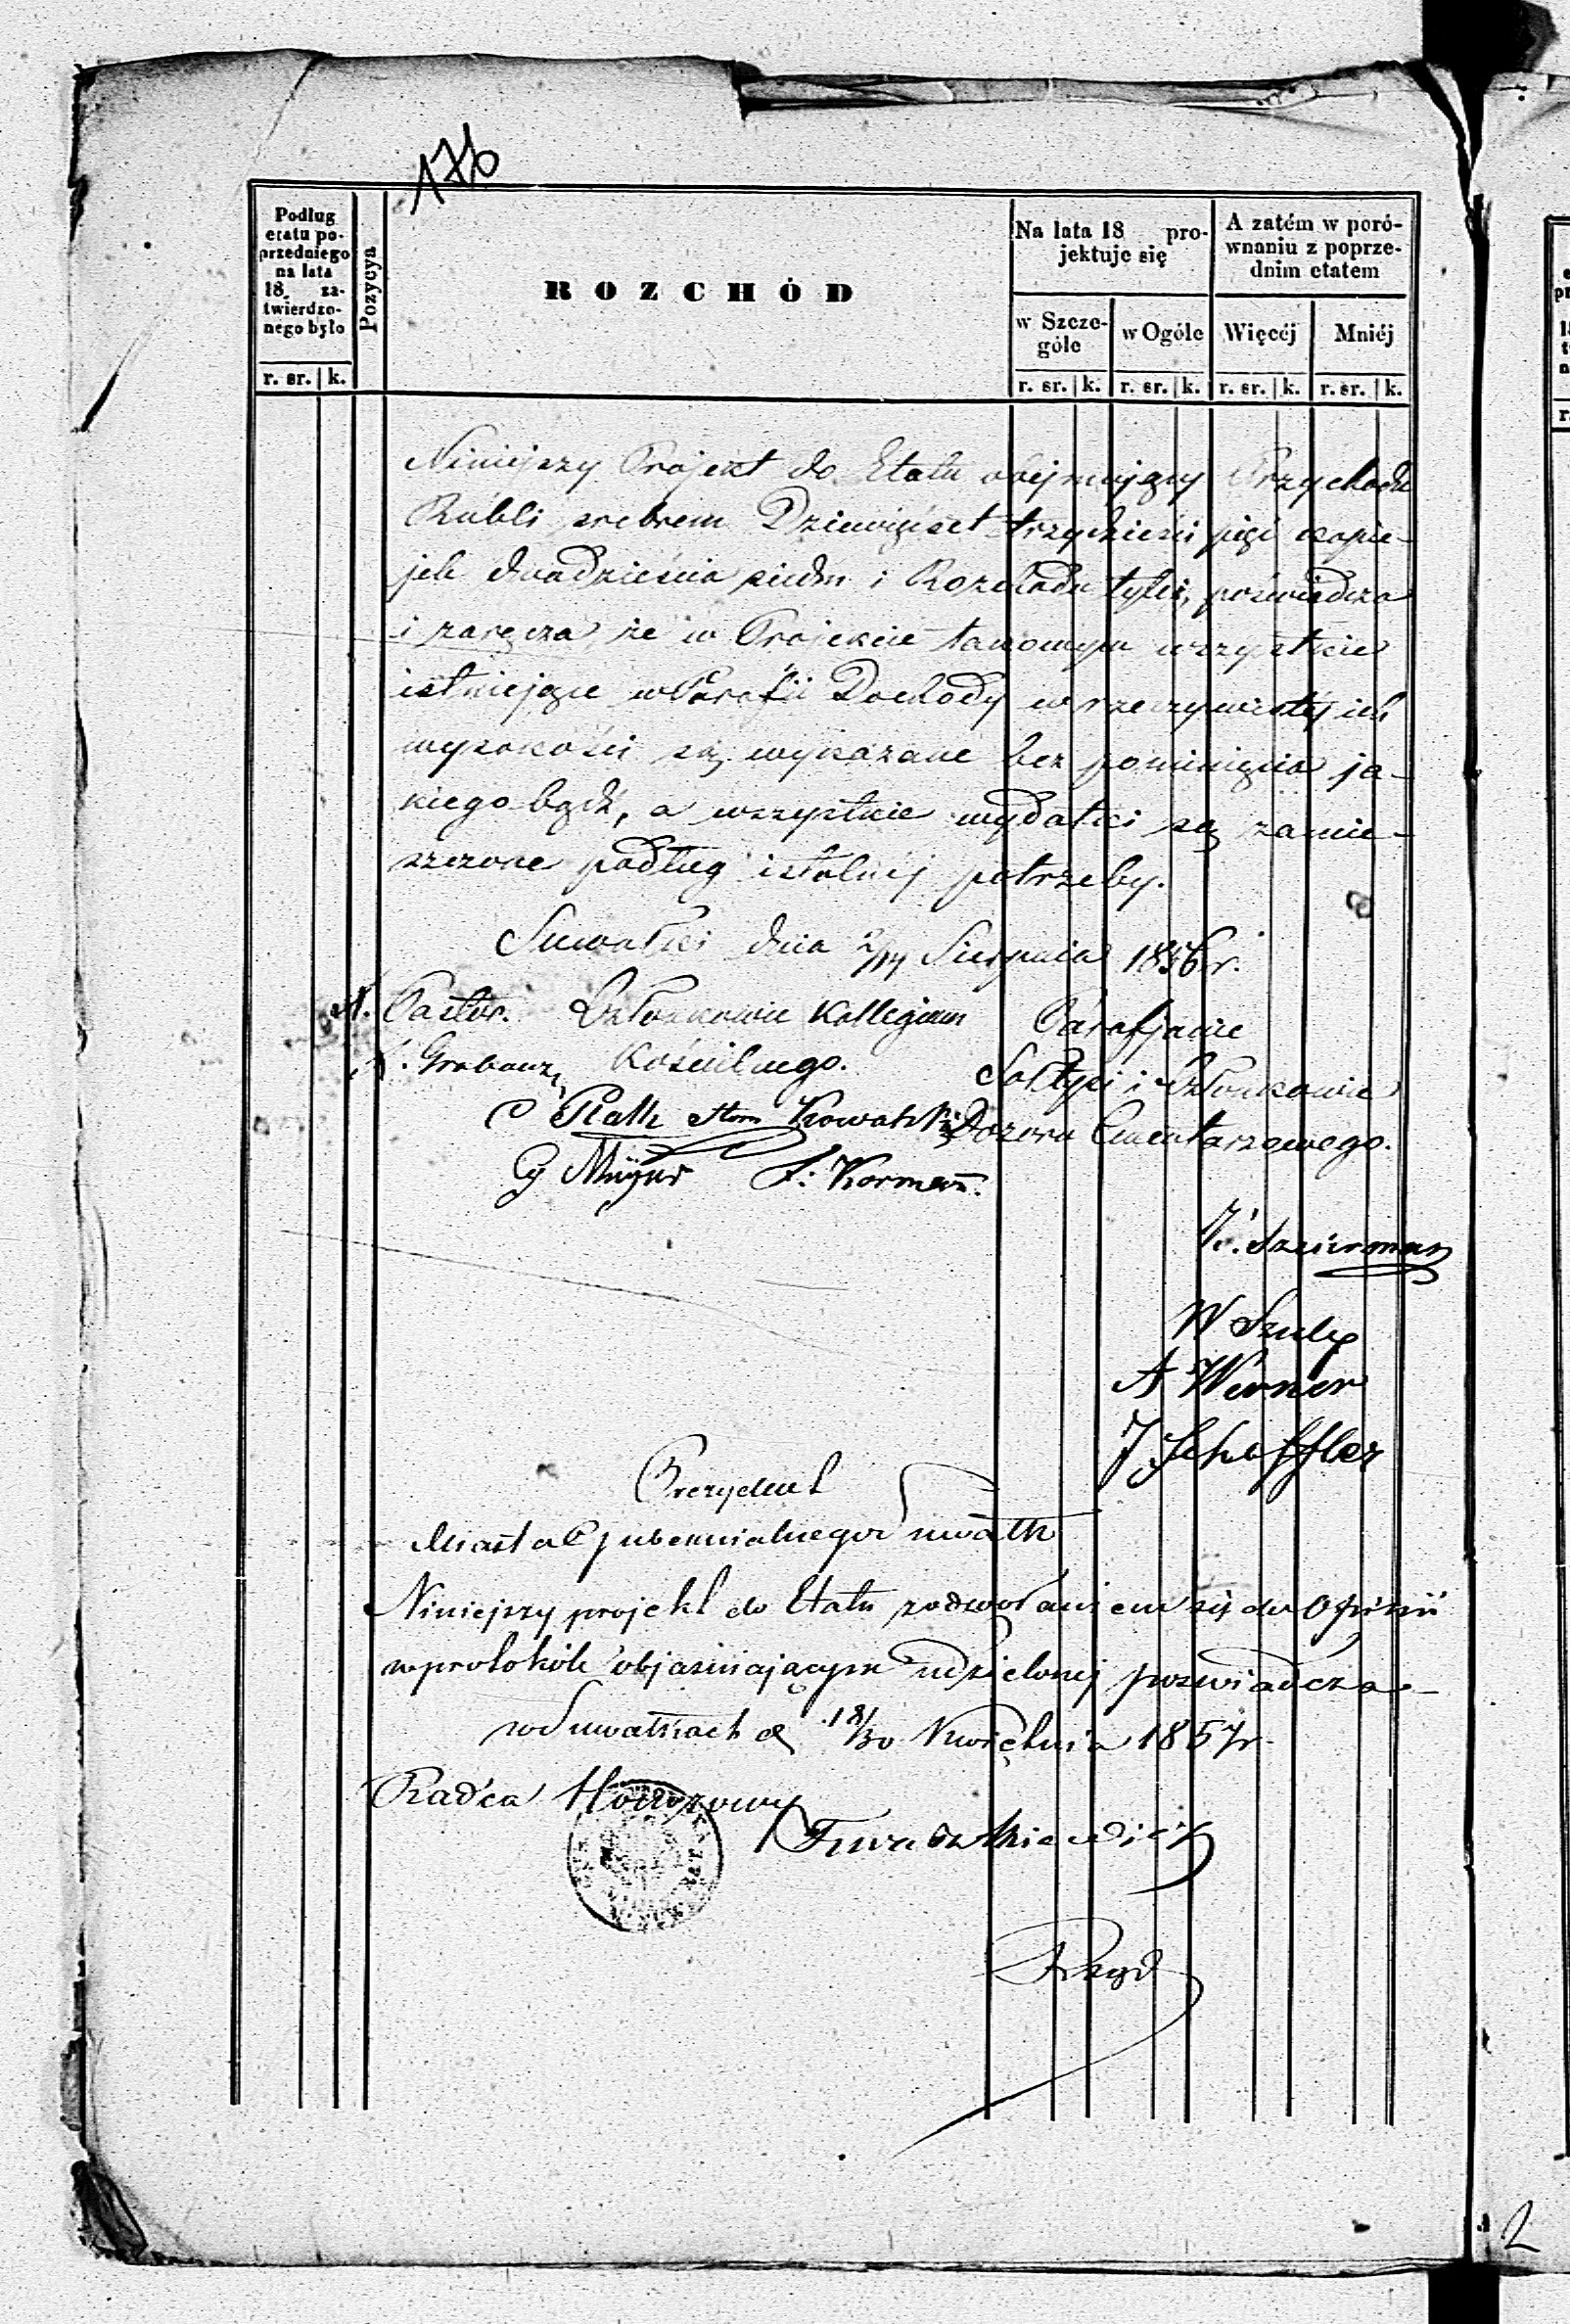 176
Podług
etatu po-
przedniego
na lata
18 za-
twierdzo-
nego było
Pozycya
ROZCHÓD
Na lata 18 pro-
jektuje się
A zatém w poró-
wnaniu z poprze-
dnim etatem
w Szcze-
góle
w Ogóle
Więcéj
Mniéj
r. sr. k.
r. sr. k. r. sr. k. r. sr. k. r. sr. k.
Niniejszy Projekt do Etatu obejmujący Przychodu
Rubli srebrem Dziewięćset trzydzieści pięć kopie-
jek dwadzieścia siedm i Rozchodu tyleż, poświadcza
i zaręcza że w Projekcie takowym wszystkie
istniejące w Parafii Dochody w rzeczywistéj ich
wysokości są wykazane bez pominięcia ja-
kiego bądź, a wszystkie wydatki są zamie-
szczone podług istotnéj potrzeby.
Suwałki dnia 2/14 Sierpnia 1856 r.
Pastor. Członkowie Kollegium Parafjanie
Kościelnego. Sołtysi i Członkowie
Kowalski Dozoru Cmentarzowego.
F: Korman.
W Szulc
A Werner
J Scheffler
Prezydent
Miasta Gubernialnego Suwałk
Niniejszy projekt do Etatu z odwołaniem się do Opinii
w protokóle objaśniającym udzielonej poświadcza
w Suwałkach d 18/30 Kwietnia 1857 r.
Radca Honorowy
2